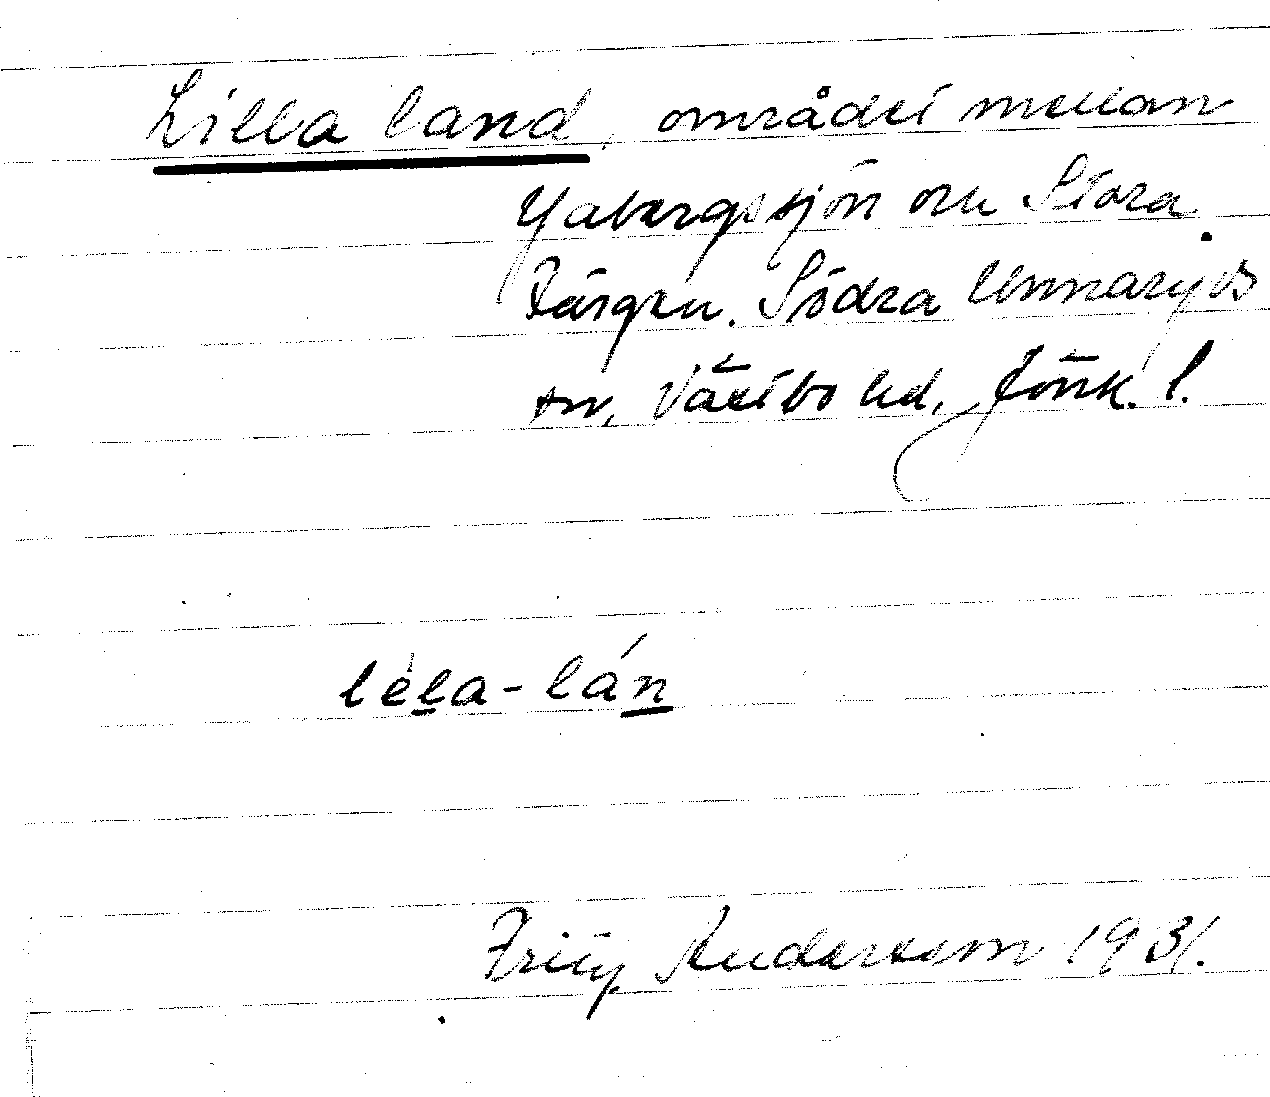 Lilla land, området mellan
Yabergssjön och Stora
Färgen. Södra Unnaryds
sn, Västbo hd, Jönk. l.
lèla-lán
Frity Andersson 1931.